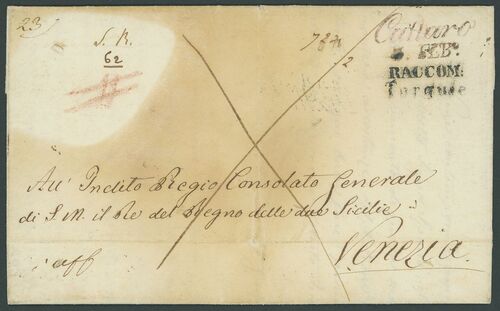 23
S. R.
62
Cattaro
5. FEBr.
RACCOM:
Turquie
All' Inclito Regio Consolato Generale
di S. M. il Re del Regno delle due Sicilie
Venezia.
aff